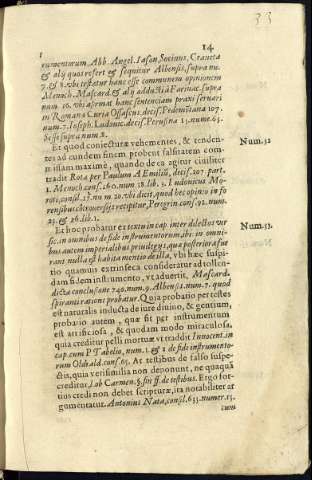 33
14
rumentorum, Abb. Angel. Iason, Socinus, Craueta
& alij quos refert & sequitur Albensis, supra nu.
7. & 8. vbi testatur hanc esse communem opinionem
Menoch. Mascard. & alij adducti à Farinac. supra
num. 16. vbi afirmat hanc sententiam praxi seruari
in Romana Curia Ossascus, decis. Pedemontana 107.
num. 7. Ioseph. Ludouic. decis. Perusina 15. nume. 65.
Sesse supra num. 2.
Et quod coniecturæ vehementes, & tendentes
ad eundem finem probent falsitatem commissam
maxime, quando de ea agitur ciuiliter
tradit Rota per Paulum AEmilii, decis. 107. part.
1. Menoch. cons. 160. num. 18. lib. 3. Ludouicus Morot.
consil. 27. nu 20. vbi dicit, quod hec opinio in forensibus
controuersijs recipitur, Peregrin. cons. 92. num.
25. & 26. lib. 1.
Num. 32
Et hoc probatur ex textu in cap. inter dilectos vers
sic. in omnibus de fide instrumentorum, ibi: in omnibus
autem imperialibus priuilegijs, quæ posteriora fuerant
nulla est habita mentio de illa, vbi hæc suspitio
quamuis extrinseca consideratur ad tollendam
fidem instrumento, vt aduertit, Mascard.
dicta conclusione 740. num. 9. Albens. 1. num. 7. quod
Num. 33.
probatur. Quia probatio per testes
est naturalis inducta de iure diuino, & gentium,
probatio autem, quæ fit per instrumentum
est artificiosa, & quodam modo miraculosa,
quia creditur pelli mortuæ vt tradit Innocent. in
cap. cum P. Tabelio, num. 1. & 2. de fide instrumentorum
Oldrald. cons. 65. At testibus de falso suspectis,
quia verisimilia non deponunt, ne quaquã
creditur, Iob Carmen. §. sin ff. de testibus. Ergo fortius
credi non debet scripturæ, ita notabiliter argumentatur.
Antonius Nata, consil. 635. numer. 15.
cum